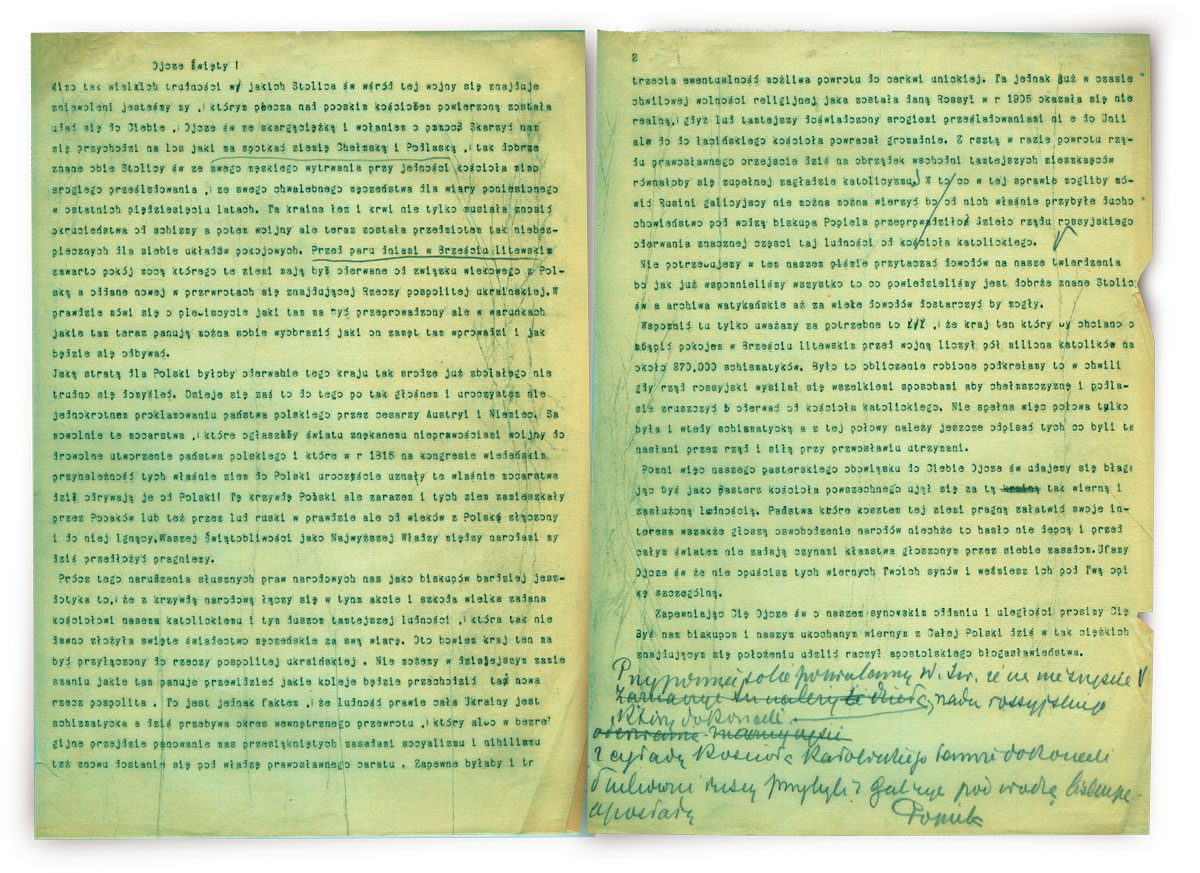 Ojcze Święty !
Mimo tak wielkich trudności w jakich Stolica św wśród tej wojny się znajduje
zniewoleni jesteśmy my , którym piecza nad polskim kościołem powierzoną została
udać się do Ciebie , Ojcze św ze skargą ciężką i wołaniem o pomoc. Skarzyć nam
się przychodzi na los jaki ma spotkać ziemię Chełmską i Podlaską , tak dobrze
znane obie Stolicy św ze swego męskiego wytrwania przy jedności kościoła mimo
srogiego prześladowania , ze swego chwalebnego męczeństwa dla wiary poniesionego
w ostatnich piędziesięciu latach. Ta kraina łez i krwi nie tylko musiała znosić
okrucieństwa od schizmy a potem wojny ale teraz została przedmiotem tak niebez-
piecznych dla siebie układów pokojowych. Przed paru dniami w Brześciu litewskim
zawarto pokój mocą którego te ziemi mają być oderwane od związku wiekowego z Pol-
ską a oddane nowej w przrwrotach się znajdującej Rzeczy pospolitej ukraińskiej.W
prawdzie mówi się o plebiscycie jaki tam ma być przeprowadzony ale w warunkach
jakie tam teraz panują można sobie wyobrazić jaki on zamęt tam wprowadzi i jak
będzie się odbywać.
Jaką stratą dla Polski byłoby oderwanie tego kraju tak srodze już zbolałego nie
trudno się domyśleć. Dzieje się zaś to do tego po tak głośnem i uroczystem nie
jednokrotnem proklamowaniu państwa polskiego przez cesarzy Austryi i Niemiec. Sa
mowolnie te mocarstwa , które ogłaszały światu znękanemu nieprawościami wojny do
browolne utworzenie państwa polskiego i które w r 1815 na kongresie wiedeńskim
przynależność tych właśnie ziem do Polski uroczyście uznały te właśnie mocarstwa
dziś odrywają je od Polski! Tę krzywdę Polski ale zarazem i tych ziem zamieszkały
przez Polaków lub też przez lud ruski w prawdzie ale od wieków z Polską złączony
i do niej lgnący.Waszej Świątobliwości jako Najwyższej Władzy między narodami my
dziś przedłożyć pragniemy.
Prócz tego narudzenia słusznych praw narodowych nas jako biskupów bardziej jesz-
dotyka to, że z krzywdą narodową łączy się w tym akcie i szkoda wielka zadana
kościołowi nasemu katolickiemu i tym duszom tamtejszej ludności , która tak nie
dawno złożyła swięte świadectwo męczeńskie za swą wiarę. Oto bowiem kraj ten ma
być przyłączony do rzeczy pospolitej ukraińskiej . Nie możemy w dzisiejszym zamie
szaniu jakie tam panuje przewidzieć jakie koleje będzie przechodzić ta nowa
rzecz pospolita . To jest jednak faktem , że ludność prawie cała Ukrainy jest
schizmatycka a dziś przebywa okres wewnętrznego przewrotu , który albo w bezre
gijne przejdzie panowanie mas przesiąkniętych zasadami socyalizmu i nihilizmu
tżż znowu dostanie się pod władzę prawosławnego caratu . Zapewne byłaby i tr
2
trzecia ewentualność możliwa powrotu do cerkwi unickiej. Ta jednak już w czasie
chwilowej wolności religijnej jaka została daną Rossyi w r 1905 okazała się nie
realną , gdyż lud tamtejszy doświadczony srogiemi prześladowaniami ni e do Unii
ale do do łacińskiego kościoła powracał gromadnie. Z rsztą w razie powrotu rzą-
du prawosławnego przejście dziś na obrządek wschodni tamtejszych mieszkańców
równałoby się zupełnej zagładzie katolicyzmu. W to co w tej sprawie mogliby mó-
wić Rusini galicyjscy nie można można wierzyć bo od nich właśnie przybyłe ducho
chowieństwo pod wodzą biskupa Popiela przeprowadziło dzieło rządu rossyjskiego
oderwania znacznej części taj ludności od kościoła katolickiego.
Nie potrzebujemy w tem naszem piśmie przytaczać dowodów na nasze twierdzenia
bo jak już wspomnieliśmy wszystko to co powiedzieliśmy jest dobrże znane Stolic
św a archiwa watykańskie aż za wiele dowodów dostarczyć by mogły.
Wspomnić tu tylko uważamy za potrzebne to , że kraj ten który by chciano o
stąpić pokojem w Brześciu litewskim przed wojną liczył pół miliona katolików na
około 270,000 schismatyków. Było to obliczenie robione podkreślamy to w chwili
gdy rząd rossyjski wysilał się wszelkiemi sposobami aby chełmszczyznę i podla-
sie zruszczyć i oderwać od kościoła katolickiego. Nie spełna więc połowa tylko
była i wtedy schismatycką a z tej połowy należy jeszcze odpisać tych co byli ta
nasłani przez rząd i siłą przy przwosławiu utrzymani.
Pomni więc naszego pasterskiego obowiąsku do Ciebie Ojcze św udajemy się błaga
jąc byś jako pasterz kościoła powszechnego ujął się za tą krainą tak wierną i
zasłużoną ludnością. Państwa które kosztem tej ziemi pragną załatwić swoje in-
teresa wszakże głoszą oswobodzenie narodów niechże to hasło nie depcą i przed
całym światem nie zadają czynami kłamstwa głoszonym przez siebie zasadom.Ufamy
Ojcze św że nie opuścisz tych wiernych Twoich synów i weźmiesz ich pod Twą opi
kę szczególną.
Zapewniając Cię Ojcze św o naszem synowskim oddaniu i uległości prosimy Cię
Byś nam biskupom i naszym ukochanym wiernym z Całej Polski dziś w tak ciężkich
znajdującym się położeniu udzlić raczył apostolskiego błogasławieństwa.
Przypomnieć sobie pozwalamy W. Św. że
rządu rossyjskiego
który dokonali
Kościoła Katolickiego dokonali
Duchowni ruscy przybyli z Galicyi pod wodzą biskupa
apostaty Popiela